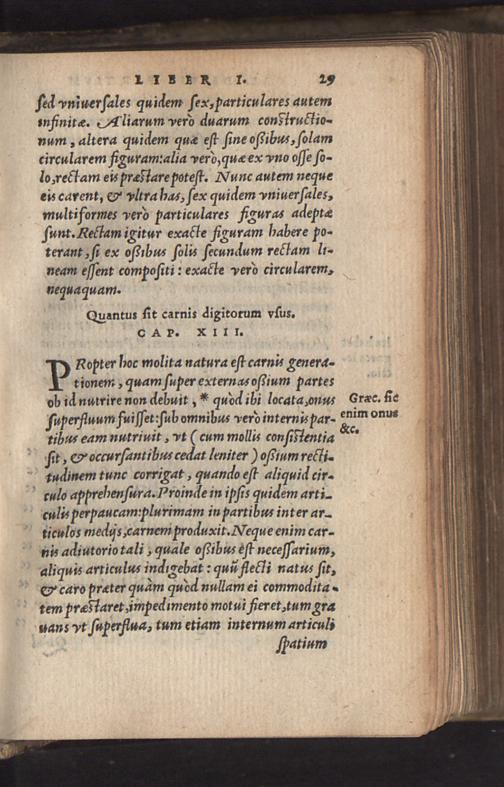 LIBER I. 29
sed vniuersales quidem sex, particulares autem
infinitæ. Aliarum verò duarum constructio-
num, altera quidem quæ est sine oßibus, solam
circularem figuram: alia verò, quæ ex vno osse so-
lo, rectam eis præstare potest. Nunc autem neque
eis carent, & vltra has, sex quidem vniuersales,
multiformes verò particulares figuras adeptæ
sunt. Rectam igitur exacte figuram habere po-
terant, si ex oßibus solis secundum rectam li-
neam essent compositi: exacte verò circularem,
nequaquam.
Quantus sit carnis digitorum vsus.
CAP. XIII.
PRopter hoc molita natura est carnis genera-
tionem, quam super externas oßium partes
ob id nutrire non debuit, * quòd ibi locata, onus
superfluum fuisset: sub omnibus verò internis par-
tibus eam nutriuit, vt (cum mollis consistentia
sit, & occursantibus cedat leniter) oßium recti-
tudinem tunc corrigat, quando est aliquid cir-
culo apprehensura. Proinde in ipsis quidem arti-
culis perpaucam: plurimam in partibus inter ar-
ticulos medijs, carnem produxit. Neque enim car-
nis adiutorio tali, quale oßibus est necessarium,
aliquis articulus indigebat: quũ flecti natus sit,
& caro præter quàm quòd nullam ei commodita-
tem præstaret, impedimento motui fieret, tum gra
uans vt superflua, tum etiam internum articuli
spatium
Græc. sic
enim onus
&c.